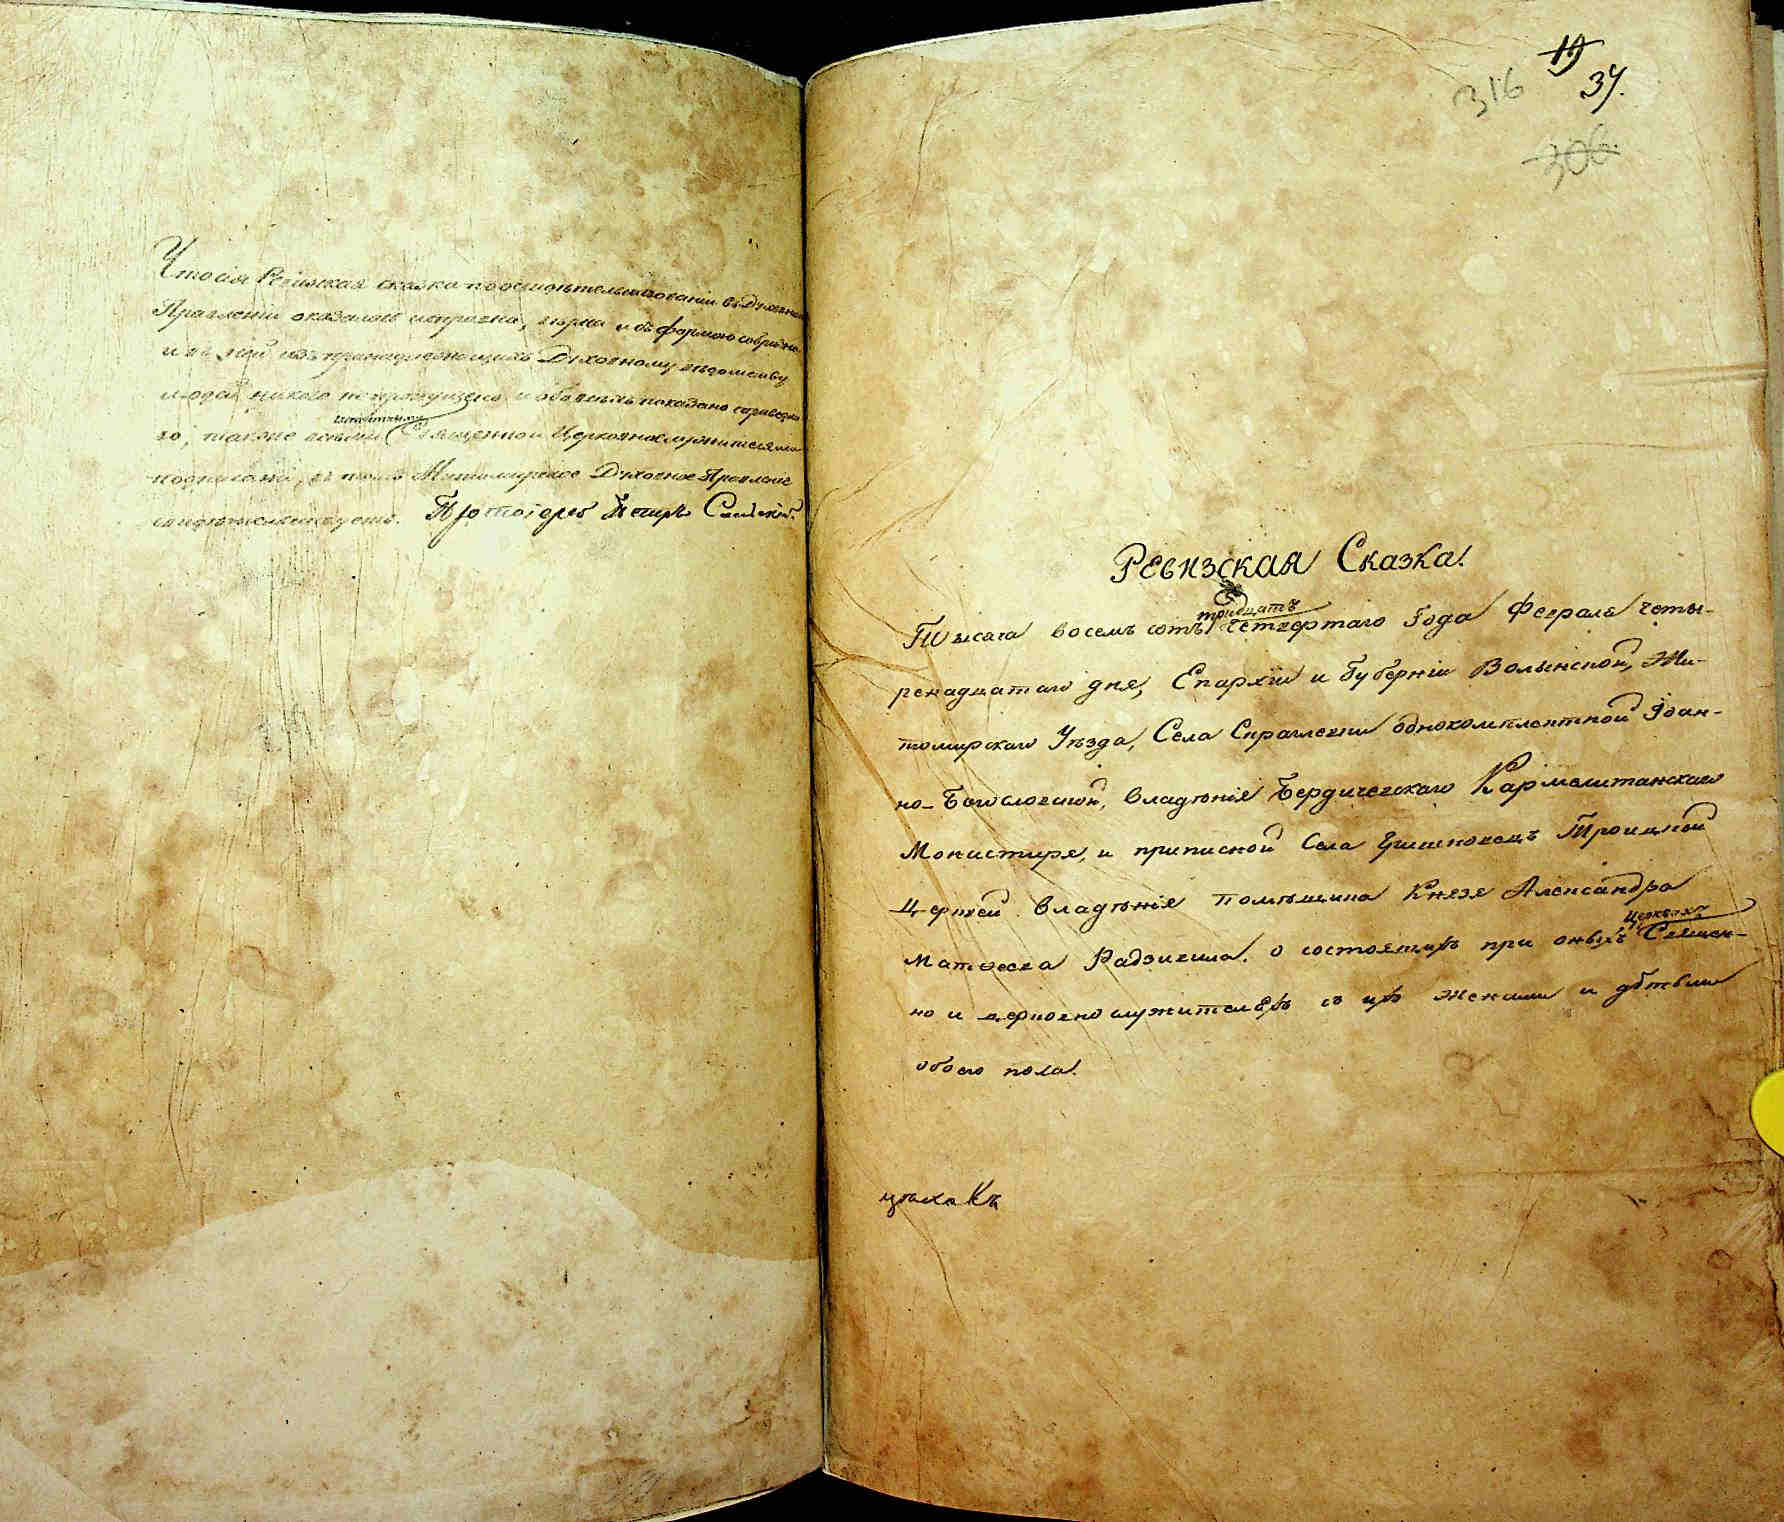 Что сія Ревизская сказка по освидѣтельствованіи въ Духовномъ
Правленіи оказалась исправна, вѣрна и съ формою сообразна
и въ ней изъ принадлежащихъ Духовному вѣдомству
людей никого не пропущено и обо всемъ показано справедли-
во, также всѣми Священно и Церковнослужителями
подписана, въ томъ Житомирское Духовное Правленіе
свидѣтельствуетъ. Протоіерей Петръ
316 19 37.
306
Ревизская Сказка.
тридцать
Тысяча восемъ сотъ четвертаго Года Февраля четы-
ренадцатаго дня, Епархіи и Губерніи Волынской, Жи-
томирскаго Уѣзда, Села однокомплектной Іоан-
но-Богословской, владѣнія Бердичевскаго Кармелитанскаго
Монастыря, и приписной Села Троицкой
Церквей владѣнія помѣщика Князя Александра
Церквахъ
Матвѣева Радзивила. о состоящихъ при оныхъ Священ-
но и церковно служителяхъ съ ихъ женами и дѣтьми
обоего пола.